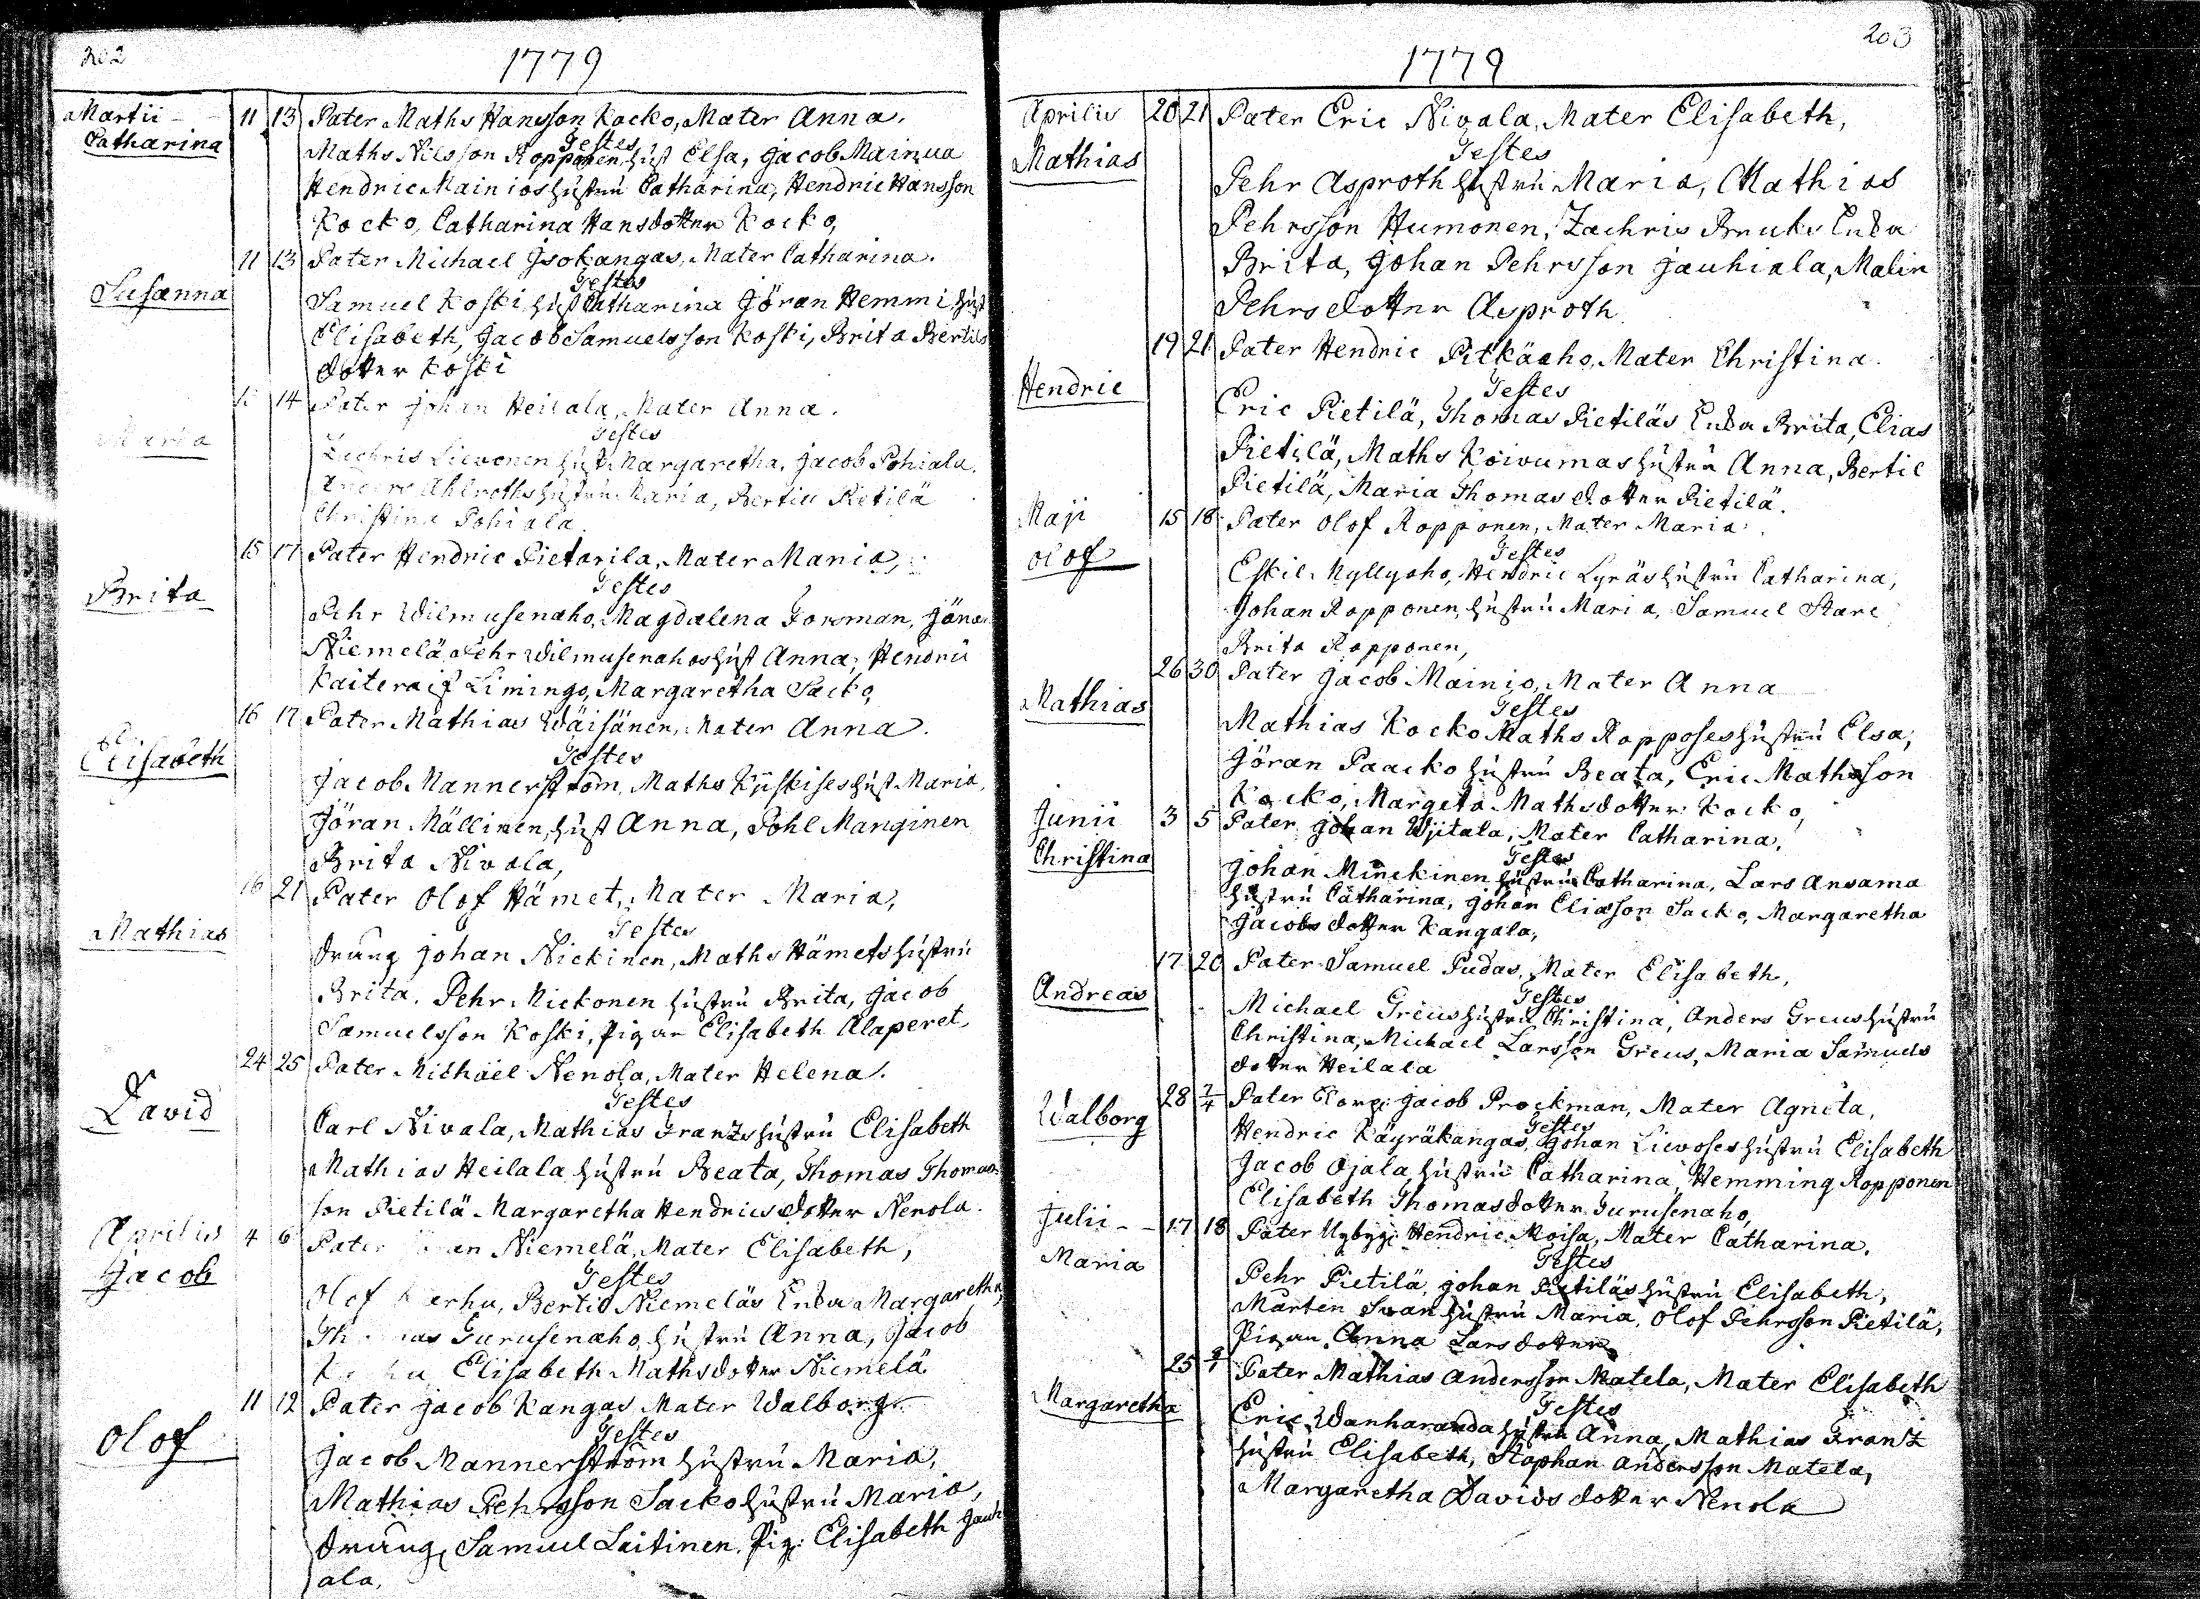 202
1779
Martii 11 13 Pater Maths Hansson Kocko, Mater Anna.
Catharina
Testes
Maths Nilsson Ropponen, hust Elsa, Jacob Mainua
Hendric Mainios hustru Catharina, Hendric Hansson
Kocko, Catharina Hansdotter Kocko,
11 13 Pater Michael Isokangas, Mater Catharina.
Susanna
Testes
Samuel Koski hust Catharina Jöran Hemmi hust
Elisabeth, Jacob Samuelsson Koski, Brita Bertils
dotter Koski
14 Pater Johan Heilala, Mater Anna.
Maria
Testes
Zachris Lievonen hust Margaretha, Jacob Pohiala,
Anders Ahlroths hustru Maria, Bertill Pietilä
Christina Pohiala.
15 17 Pater Hendric Pietarila, Mater Maria,
Brita
Testes
Pehr Wilmusenaho, Magdalena Forsman, Jöran
Niemelä Pehr Wilmusenahos hust Anna, Hendric
Kaitera if Limingo, Margaretha Sacko,
16 17 Pater Mathias Wäisänen, Mater Anna.
Elisabeth
Testes
Jacob Mannerström, Maths Kyskises hust Maria,
Jöran Mällinen, hust Anna, Pohl Manginen
Brita Nivala,
16 21 Pater Olof Hämet, Mater Maria,
Mathias
Testes
Dräng Johan Nickinen, Maths Hämets hustru
Brita, Pehr Mickonen hustru Brita, Jacob
Samuelsson Koski, Pigan Elisabeth Alaperet
24 25 Pater Michael Nenola, Mater Helena.
David
Testes
Carl Nivala, Mathias Frantz hustru Elisabeth
Mathias Heilala hustru Beata, Thomas Thomas
son Pietilä Margaretha Hendricsdotter Nenola.
Aprilis 4 6 Pater Niemelä, Mater Elisabeth,
Jacob
Testes
Olof Bertil Niemeläs Enka Margaretha,
Thomas Turusenaho, hustru Anna, Jacob
Elisabeth Mathsdotter Niemelä
11 12 Pater Jacob Kangas, Mater Walborg
Olof
Testes
Jacob Mannerström hustru Maria,
Mathias Pehrsson Sacko hustru Maria,
Dräng Samuel Laitinen, Pig: Elisabeth Jauh
ala,
203
1779
Aprilis 20 21 Pater Eric Nivala, Mater Elisabeth,
Mathias
Testes
Pehr Asproth hustru Maria, Mathias
Pehrsson Humonen, Zachris Bruks Enka
Brita, Johan Pehrsson Jauhiala, Malin
Pehrsdotter Asproth
19 21 Pater Hendric Pitkäaho, Mater Christina.
Hendric
Testes
Eric Pietilä, Thomas Pietiläs Enka Brita, Elias
Pietilä, Maths Koivumas hustru Anna, Bertil
Pietilä, Maria Thomasdotter Pietilä.
Maji 15 18 Pater Olof Ropponen, Mater Maria.
Olof
Testes
Eskil Myllyaho, Hendric Lyräs hustru Catharina,
Johan Ropponen, hustru Maria, Samuel Stare
Brita Ropponen,
26 30 Pater Jacob Mainio, Mater Anna
Mathias
Testes
Mathias Kocko Maths Ropposes hustru Elsa,
Jöran Paacko hustru Beata, Eric Mathsson
Kocko, Margeta Mathsdotter Kocko,
Junii 3 5 Pater Johan Wjitala, Mater Catharina,
Christina
Testes
Johan Minckinen hustru Catharina, Lars Ansama
hustru Catharina, Johan Eliasson Sacko, Margaretha
Jacobsdotter Kangala,
17 20 Pater Samuel Pudas, Mater Elisabeth,
Andreas
Testes
Michael Greus hustru Christina, Anders Greus hustru
Christina, Michael Larsson Greus, Maria Samuels
dotter Heilala
28 7/4 Pater Jacob Brockman, Mater Agneta,
Walborg
Testes
Hendric Käyräkangas, Johan Lievoses hustru Elisabeth
Jacob Ojala, hustru Catharina, Hemming Ropponen
Elisabeth Thomasdotter Turusenaho,
Julii 17 18 Pater Nybyg: Hendric Moisa, Mater Catharina.
Maria
Testes
Pehr Pietilä, Johan Pietiläs hustru Elisabeth,
Mårten Svan hustru Maria, Olof Pehrsson Pietilä,
Pigan Anna Larsdotter
25 Pater Mathias Andersson Matela, Mater Elisabeth
Margaretha
Testes
Eric Wanharanda hustru Anna, Mathias Frantz
hustru Elisabeth, Staphan Andersson Matela,
Margaretha Davidsdotter Nenola